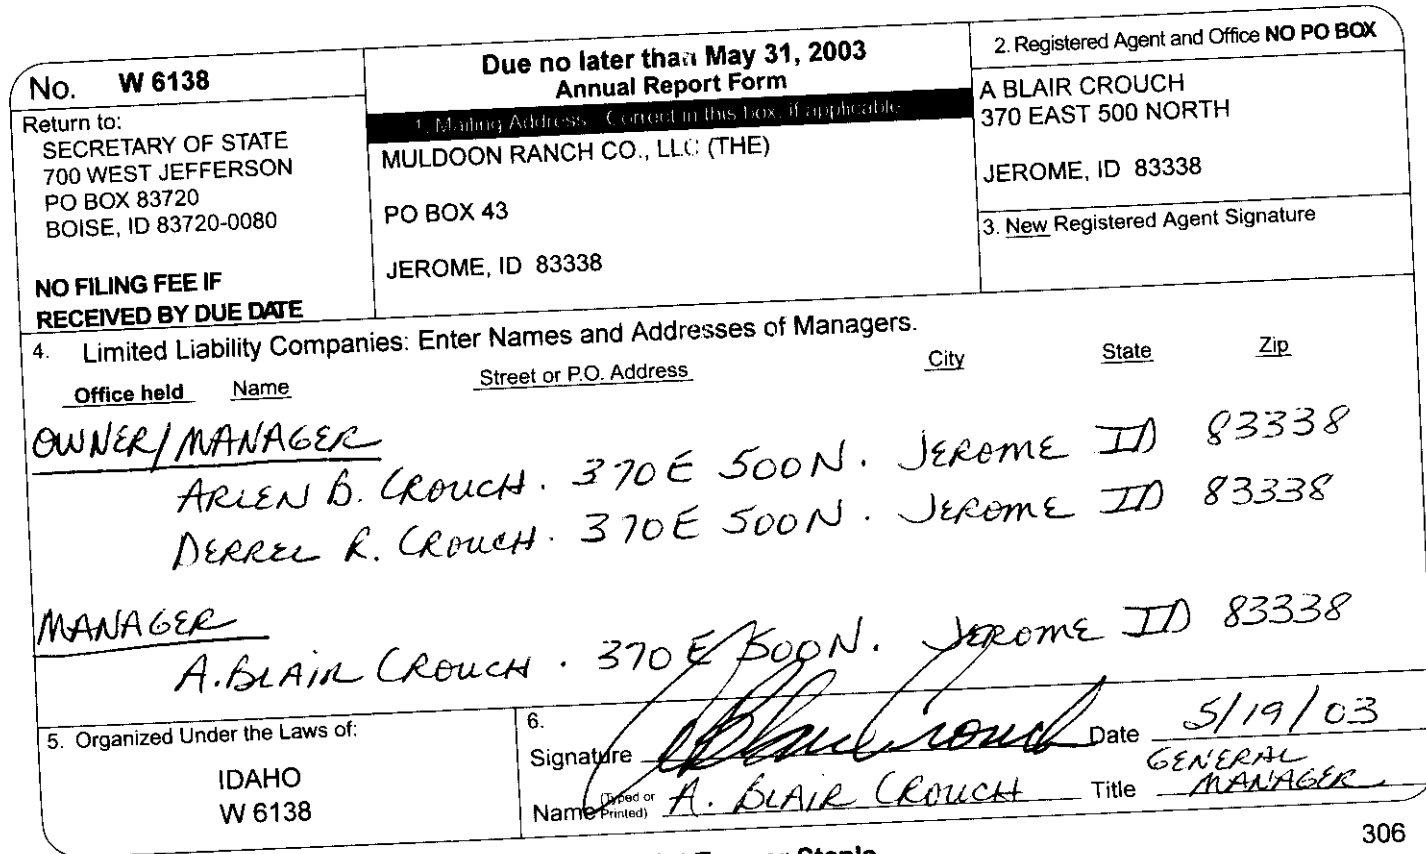 No. W 6138
Return to:
SECRETARY OF STATE
700 WEST JEFFERSON
PO BOX 83720
BOISE, ID 83720-0080
NO FILING FEE IF
RECEIVED BY DUE DATE
Due no later than May 31, 2003
Annual Report Form
1. Mailing Address. Correct in this box, if applicable
MULDOON RANCH CO., LLC (THE)
PO BOX 43
JEROME, ID 83338
2. Registered Agent and Office NO PO BOX
A BLAIR CROUCH
370 EAST 500 NORTH
JEROME, ID 83338
3. New Registered Agent Signature
4. Limited Liability Companies: Enter Names and Addresses of Managers.
Office held Name Street or P.O. Address City State Zip
OWNER/MANAGER
ARLEN B. CROUCH. 370 E 500 N. JEROME ID 83338
DERREL R. CROUCH. 370 E 500 N. JEROME ID 83338
MANAGER
A. BLAIR CROUCH. 370 E 500 N. JEROME ID 83338
5. Organized Under the Laws of:
IDAHO
W 6138
6.
Signature A Blair Crouch Date 5/19/03
Name (Typed or Printed) A. BLAIR CROUCH Title GENERAL MANAGER
306